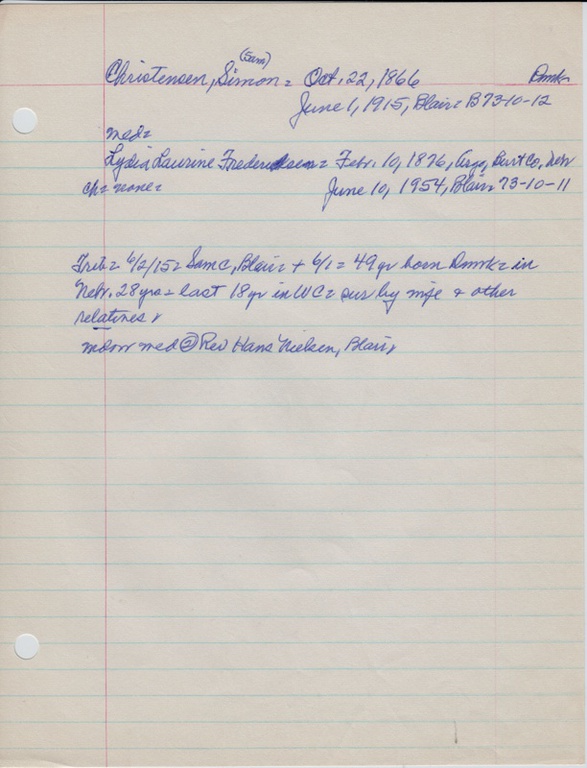 (Sam)
Christensen, Simon = Oct. 22, 1866 Dmk
June 1, 1915, Blair = B 73-10-12
med=
Lydia Laurine Fredericksen = Febr. 10, 1876, Argo, Burt Co, Nebr
ch= none= June 10, 1954, Blair= 73-10-11
Trib= 6/2/15 = Sam C, Blair + 6/1 = 49 yr born Dmk = in
Nebr. 28 yrs = last 18 yr in WC = sur by wife & other
relatives
widow med ② Rev Hans Nielsen, Blair